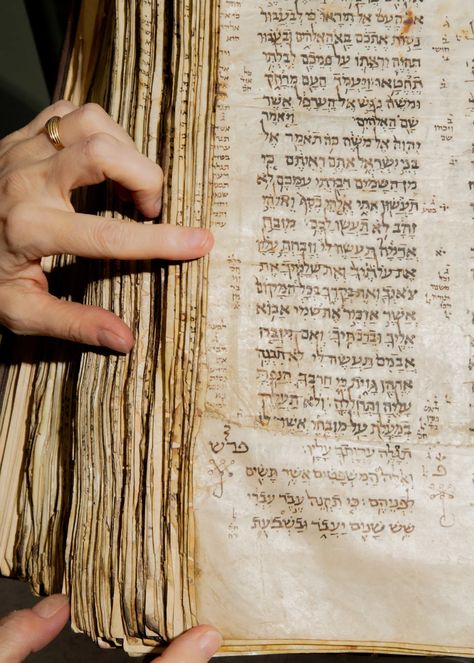 העם אל תיראו כי לבעבור
נסות אתכם בא האלהים ובעבור
תהיה יראתו על פניכם לבלתי
תחטאו ויעמד העם מרחק
ומשה נגש אל הערפל אשר
שם האלהים ויאמר
יהוה אל משה כה תאמר אל
בני ישראל אתם ראיתם כי
מן השמים דברתי עמכם לא
תעשון אתי אלהי כסף ואלהי
זהב לא תעשו לכם מזבח
אדמה תעשה לי וזבחת עליו
את עלתיך ואת שלמיך את
צאנך ואת בקרך בכל המקום
אשר אזכיר את שמי אבוא
אליך וברכתיך ואם מזבח
אבנים תעשה לי לא תבנה
אתהן גזית כי חרבך הנפת
עליה ותחללה ולא תעלה
במעלת על מזבחי אשר לא
תגלה ערותך עליו
פרש
ואלה המשפטים אשר תשים
לפניהם כי תקנה עבד עברי
שש שנים יעבד ובשבעת